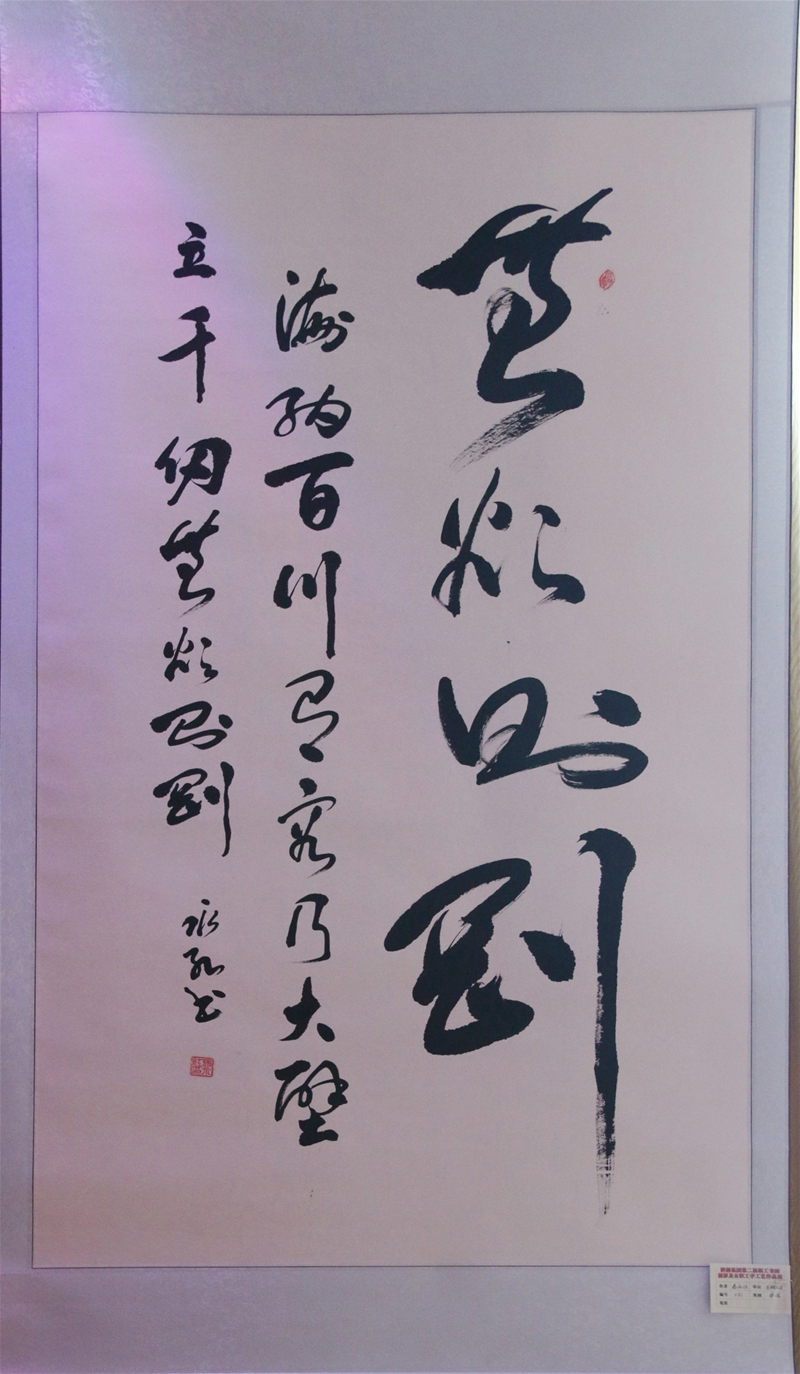 無欲則剛
海納百川有容乃大壁
立千仞無欲則剛
永
書